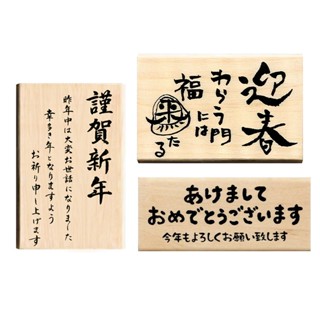 謹賀新年
昨年中は大変お世話になりました
幸多き年となりますよう
お祈り申し上げます
迎春
わらう門には
福来たる
あけまして
おめでとうございます
今年もよろしくお願い致します